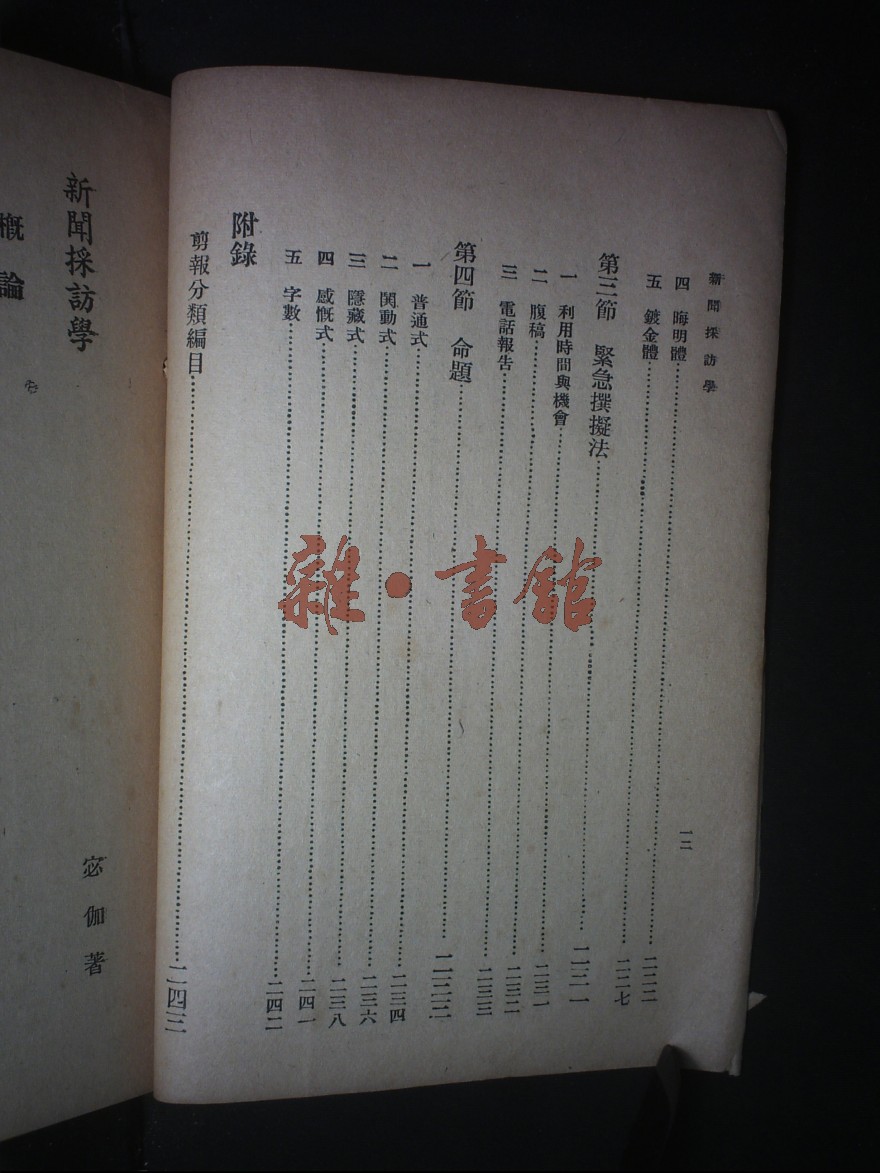 新聞採訪學
一二
四 晦明體……二二二
五 鍍金體……二二七
第三節 緊急撰擬法……二三一
一 利用時間與機會……二三一
二 腹稿……二三二
三 電話報告……二三三
第四節 命題……二三三
一 普通式……二三四
二 関動式……二三六
三 隱藏式……二三八
四 感慨式……二四一
五 字數……二四二
附錄
剪報分類編目……二四三
新聞採訪學
宓伽著
概論
雜·書館